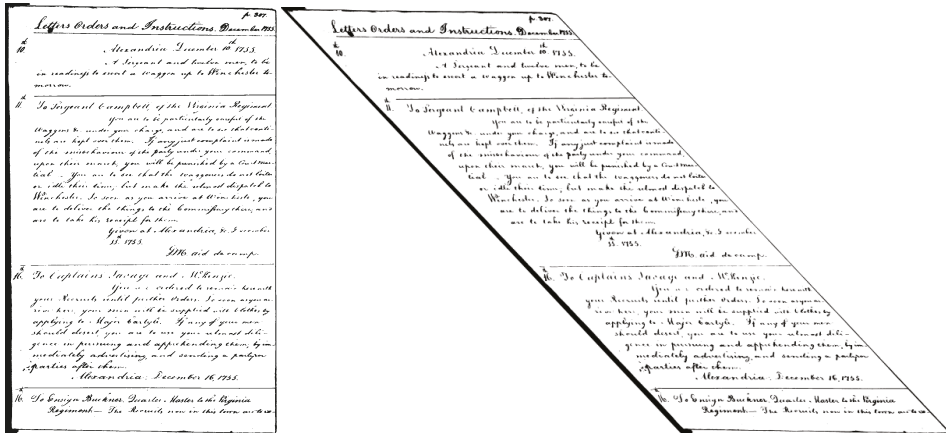 p. 307.
Letters Orders and Instructions. December 1755.
10.th Alexandria December 10.th 1755.
A Sergeant and twelve men, to be
in readiness to escort a waggon up to Winchester to-
morrow.
11.th To Sergeant Campbell, of the Virginia Regiment
You are to be particularly careful of the
Waggons &c. under your charge, and are to see that centi-
nels are kept over them. If any just complaint is made
of the misbehaviour of the party under your command,
upon their march, you will be punished by a Court Mar-
tial. You are to see that the waggoners do not loiter
or idle their time, but make the utmost dispatch to
Winchester. So soon as you arrive at Winchester, you
are to deliver the things to the Commissary there, and
are to take his receipt for them.
Given at Alexandria, &c. December
11.th 1755.
GM. aid de camp.
16.th To Captains Savage and McKenzie.
You are ordered to remain here with
your Recruits until further Orders. So soon as your men ar-
rive here, your men will be supplied with Clothes, by
applying to Major Carlyle. If any of your men
should desert, you are to use your utmost dili-
gence in pursuing and apprehending them, by im-
mediately advertising, and sending a party or
parties after them.
Alexandria: December 16, 1755.
16. To Ensign Buckner, Quarter-Master to the Virginia
Regiment — The Recruits now in this town are to re-
p. 307.
Letters Orders and Instructions. December 1755.
10.th Alexandria December 10.th 1755.
A Sergeant and twelve men, to be
in readiness to escort a waggon up to Winchester to-
morrow.
11.th To Sergeant Campbell, of the Virginia Regiment
You are to be particularly careful of the
Waggons &c. under your charge, and are to see that centi-
nels are kept over them. If any just complaint is made
of the misbehaviour of the party under your command,
upon their march, you will be punished by a Court Mar-
tial. You are to see that the waggoners do not loiter
or idle their time, but make the utmost dispatch to
Winchester. So soon as you arrive at Winchester, you
are to deliver the things to the Commissary there, and
are to take his receipt for them.
Given at Alexandria, &c. December
11.th 1755.
GM. aid de camp.
16.th To Captains Savage and McKenzie.
You are ordered to remain here with
your Recruits until further Orders. So soon as your men ar-
rive here, your men will be supplied with Clothes, by
applying to Major Carlyle. If any of your men
should desert, you are to use your utmost dili-
gence in pursuing and apprehending them, by im-
mediately advertising, and sending a party or
parties after them.
Alexandria: December 16, 1755.
16. To Ensign Buckner, Quarter-Master to the Virginia
Regiment — The Recruits now in this town are to re-